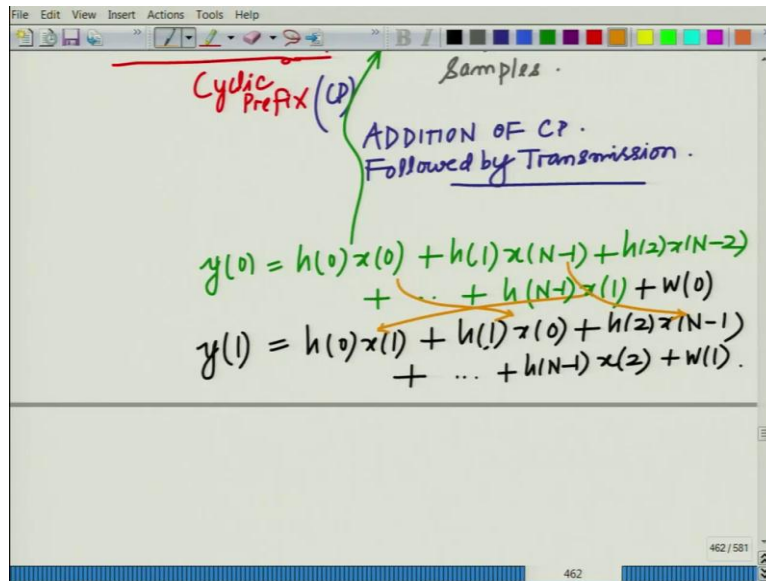 File Edit View Insert Actions Tools Help
B I
Cyclic Prefix (CP)
Samples.
ADDITION OF CP.
Followed by Transmission.
y(0) = h(0)x(0) + h(1)x(N-1) + h(2)x(N-2)
+ ... + h(N-1)x(1) + W(0)
y(1) = h(0)x(1) + h(1)x(0) + h(2)x(N-1)
+ ... + h(N-1)x(2) + W(1).
462 / 581
462